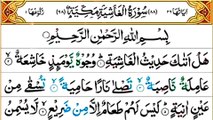 سُورَةُ الْغَاشِيَةِ مَكِّيَّةٌ
بِسْمِ اللهِ الرَّحْمٰنِ الرَّحِيْمِ
هَلْ اَتٰىكَ حَدِيْثُ الْغَاشِيَةِ وُجُوْهٌ يَّوْمَئِذٍ خَاشِعَةٌ
عَامِلَةٌ نَّاصِبَةٌ تَصْلٰى نَارًا حَامِيَةً تُسْقٰى مِنْ
عَيْنٍ اٰنِيَةٍ لَيْسَ لَهُمْ طَعَامٌ اِلَّا مِنْ ضَرِيْعٍ